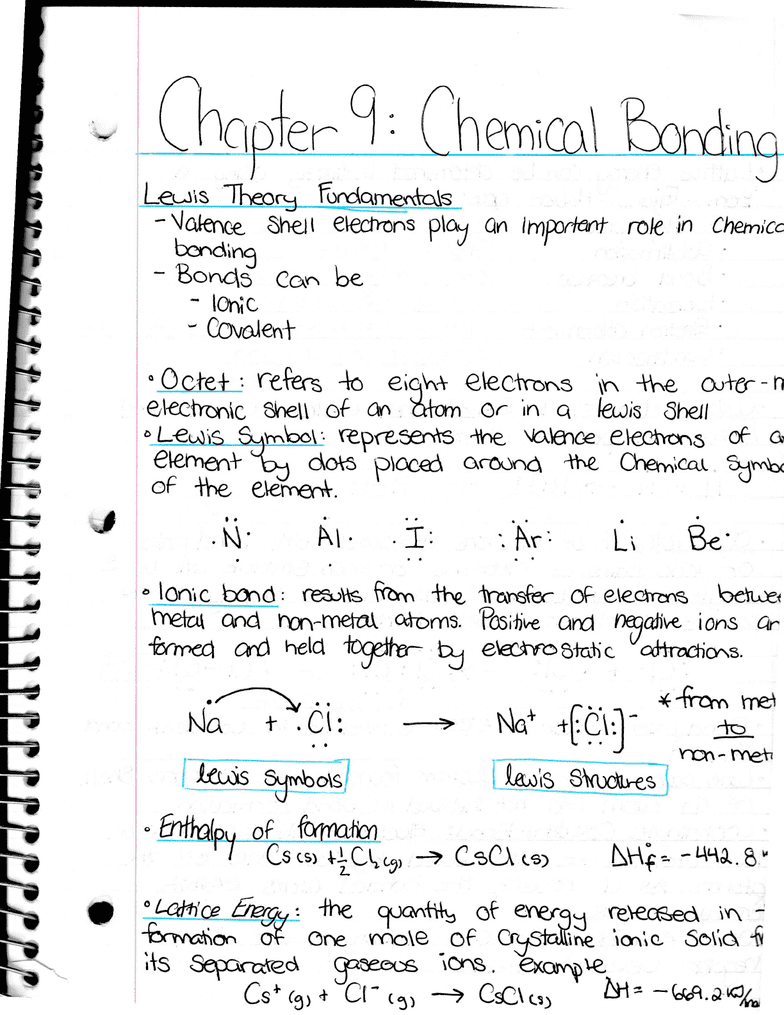 Chapter 9: Chemical Bonding
Lewis Theory Fundamentals
- Valence Shell electrons play an important role in Chemica
bonding
- Bonds can be
- Ionic
- Covalent
• Octet: refers to eight electrons in the outer-m
electronic shell of an atom or in a lewis Shell
• Lewis Symbol: represents the valence electrons of a
element by dots placed around the Chemical Symbo
of the element.
N Al I Ar Li Be
• Ionic bond: results from the transfer of electrons betwe
metal and non-metal atoms. Positive and negative ions ar
formed and held together by electrostatic attractions.
Na + Cl: → Na⁺ + [:Cl:]⁻ * from met
to
non-meta
lewis symbols lewis Structures
• Enthalpy of formation
Cs(s) + ½Cl₂(g) → CsCl(s) ΔH°f = -442.8
• Lattice Energy: the quantity of energy released in
formation of one mole of Crystalline ionic Solid fr
its Separated gaseous ions. example
Cs⁺(g) + Cl⁻(g) → CsCl(s) ΔH = -669.2 kJ/mol